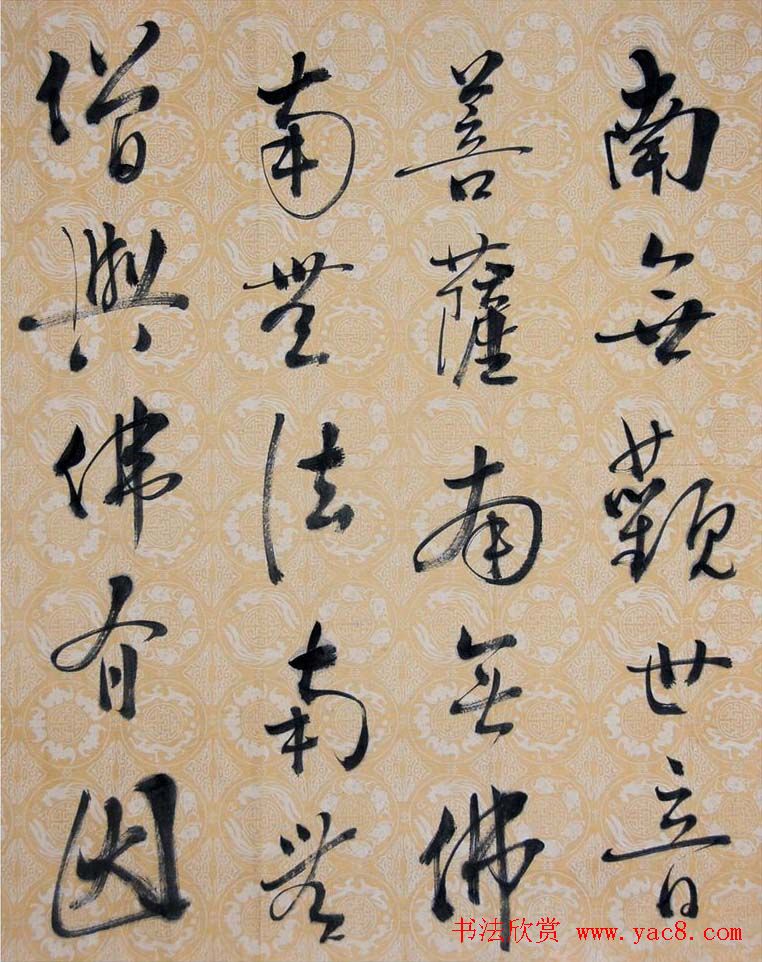 南無觀世音
菩薩南無佛
南無法南無
僧與佛有因
书法欣赏 www.yac8.com